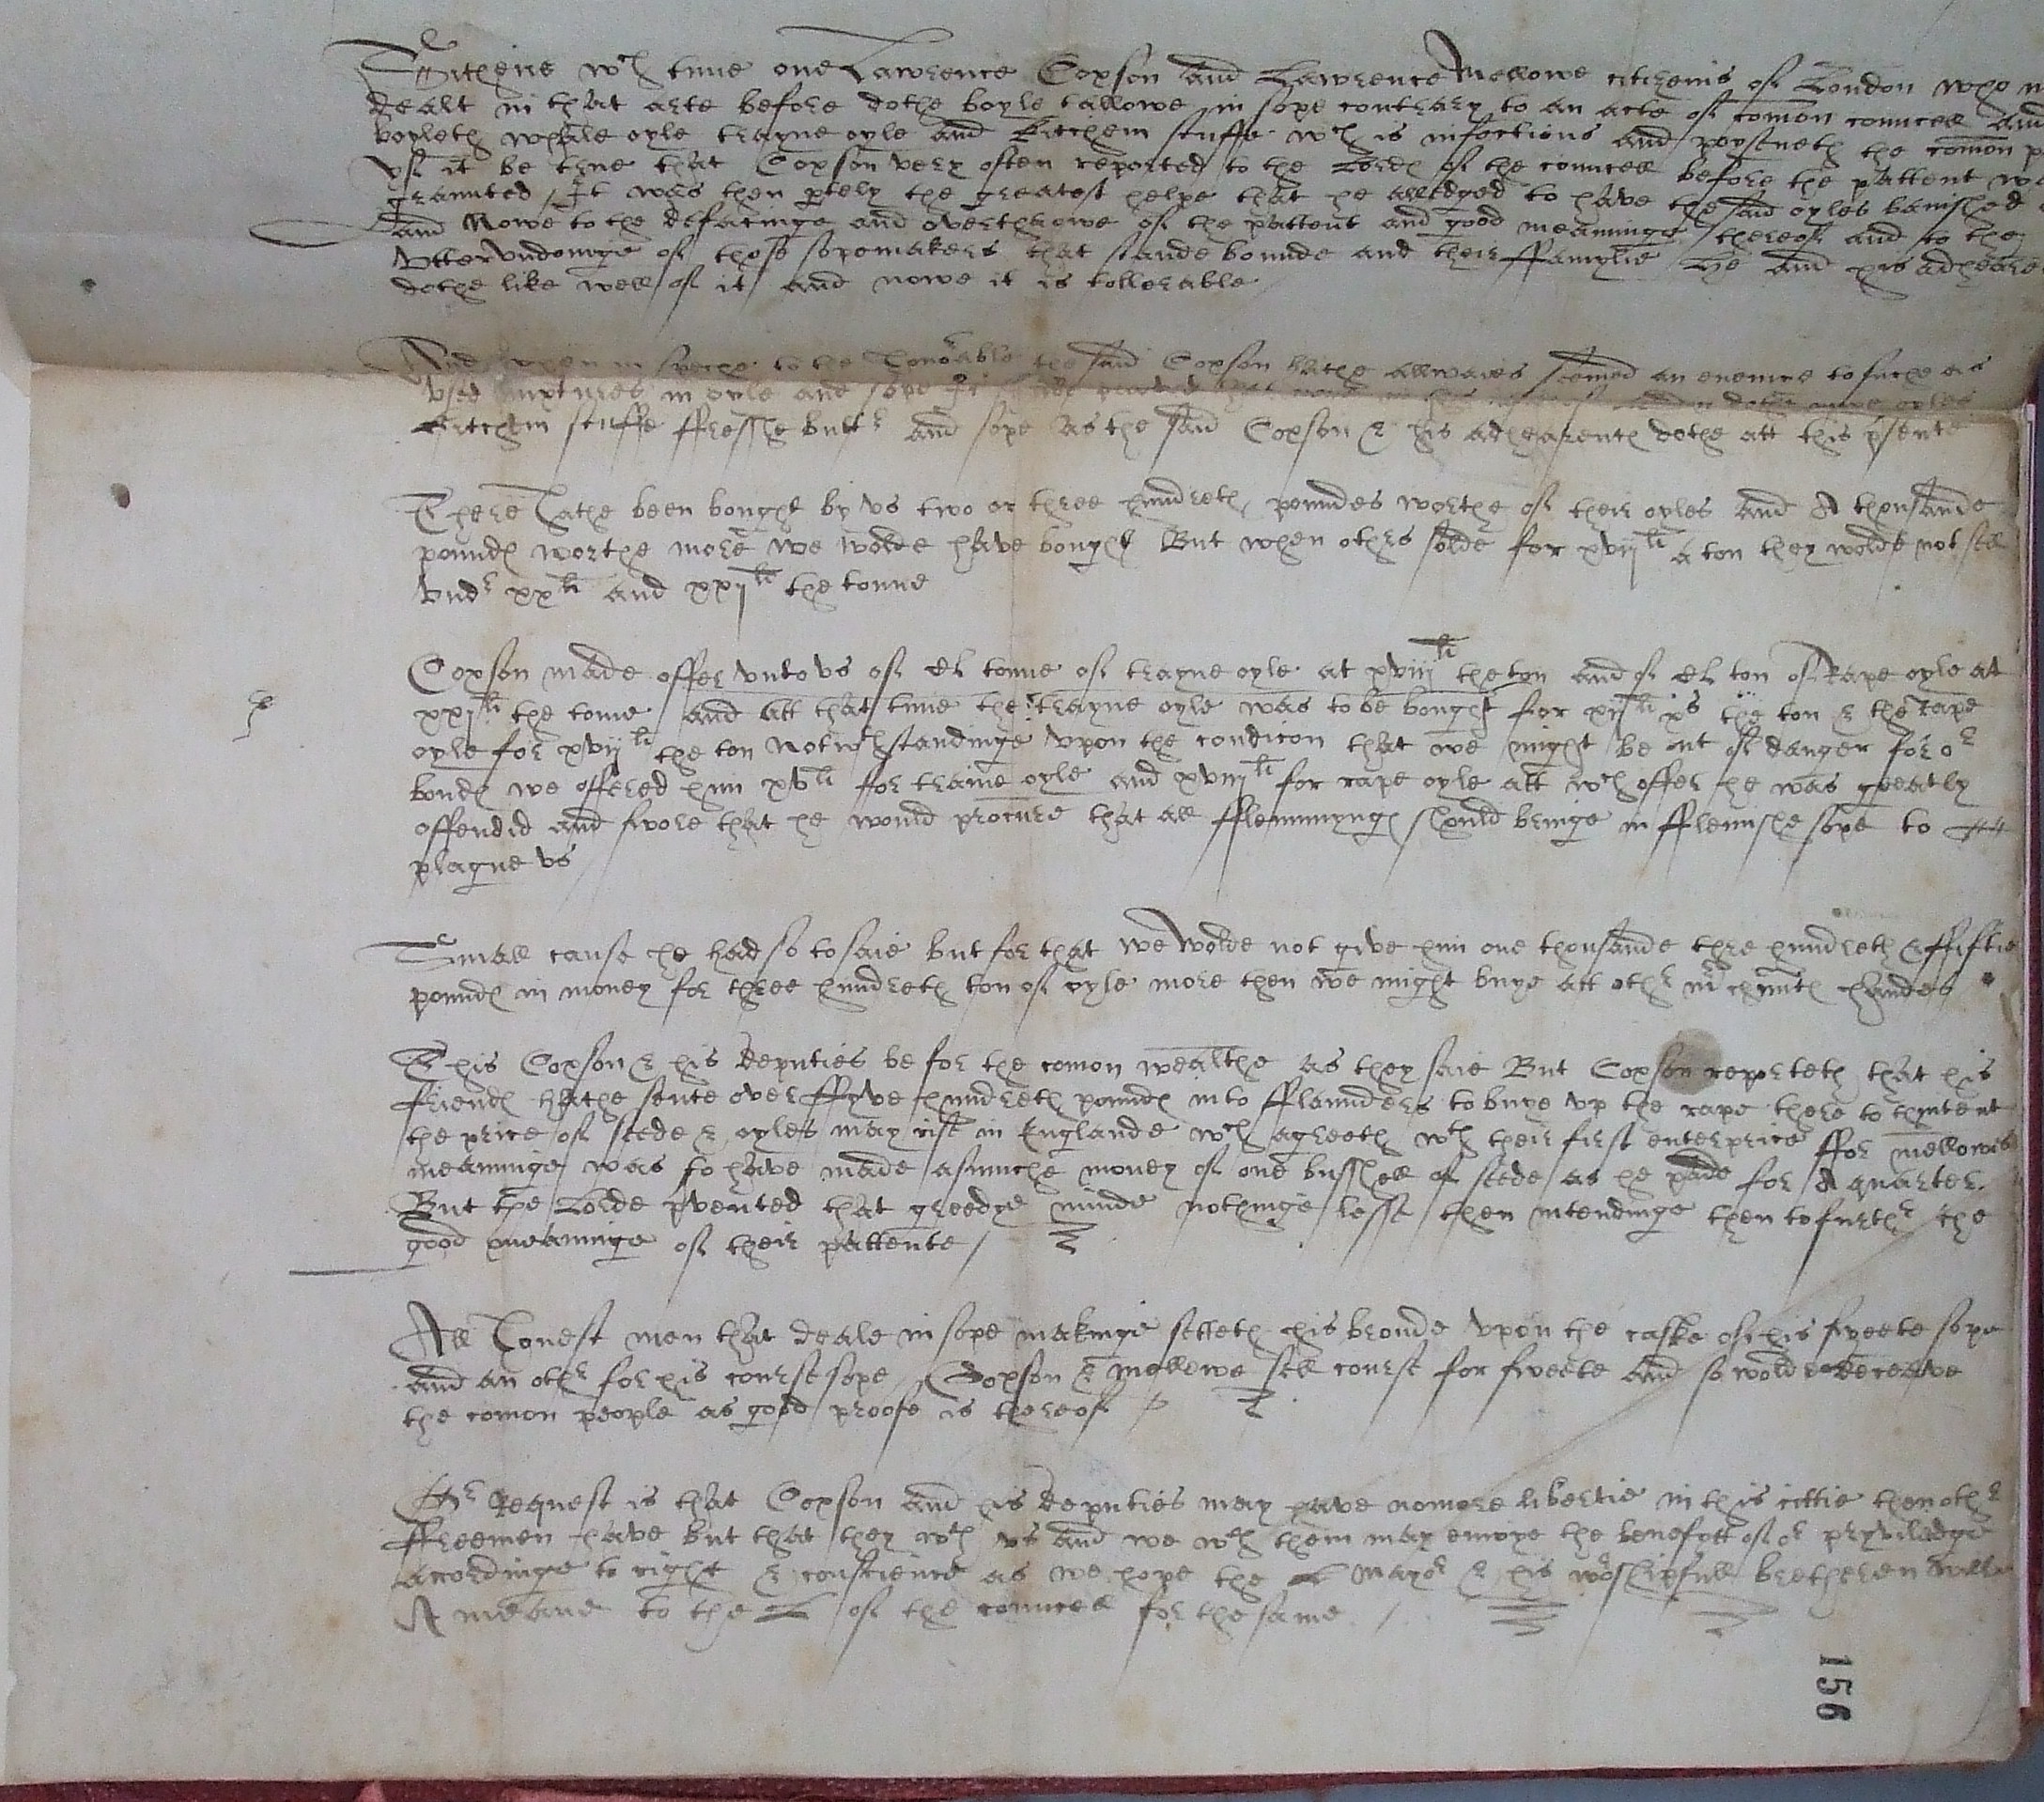 Sithens wch time one Lawrence Coxson and Lawrence Mellowe citizenis of London who
dealt in that arte before dothe boyle tallowe in sope contrary to an acte of comon councell And
boyleth whale oyle trayne oyle and kitchem stuffe wch is infectious and poysneth the comon
yf it be true that Coxson very often reported to the Lordes of the councell before the pattent
graunted / It was then ptely the greatest helpe that he alledged to have the said oyles banished
and Nowe to the defacinge and overthrowe of the pattent and good meaninge thereof and to the
Utter Undoinge of those sopemakers that stande bounde and their ffamylie he and his
dothe like well of it and nowe it is tollerable
And when in speche to the honorable the said Coxson hathe allwaies seemed an enemie to suche as
used mixtures in oyle and sope
kitchem stuffe ffresshe buttr and sope as the said Coxson & his adhearentes dothe att this psente
There hathe been bought by us two or three hundreth poundes worthe of their oyles and A thousande
poundes worthe more we wolde have bought But when othrs solde for xvijli a ton they wolde not sell
undr xxli and xxijli the tonne
Coxson made offer unto us of CL tonne of trayne oyle at xviijli the ton and of CL ton of Rape oyle at
xxijli the tonne and att that time the trayne oyle was to be bought for xijli xs the ton & the rape
oyle for xvijli the ton Notwthstandinge upon the condicon that we might be out of danger for or
bondes we offered him xvli for traine oyle and xviijli for rape oyle att wch offer he was greatly
offendid and swore that he would procure that all fflemmynges should bringe in fflemishe sope to
plague us
Small cause he had so to saie but for that we wolde not give him one thousande thre hundreth & ffiftie
poundes in money for three hundreth ton of oyle more then we might buye att othr mrchauntes handes
This Coxson & his deputies be for the comon wealthe as they saie But Coxson reporteth that his
friendes hathe sente over ffyve hundreth poundes into fflaunders to buye up the rape there to thintent
the price of seede & oyles may rise in Englande wch agreeth wth their first enterprice ffor mellowes
meaninge was to have made asmuche money of one busshell of seede as he paide for A quarter.
But the Lorde pvented that greedye minde nothinge lesse then intendinge then to furthr the
good meaninge of their pattente /
All honest men that deale in sope makinge setteth his bronde upon the caske of his sweete sope
and an othr for his course sope / Coxson & mellowe sell course for sweete and so wolde deceave
the comon people as good proofe is thereof
Or Request is that Coxson and his deputies may have nomore libertie in this cittie then othr
ffreemen have but that they wth us and we wth them may enioye the benefytt of or pryviledge
Accordinge to right & conscience as we hope the L Mayor & his worshipfull bretheren wilbe
A meane to the L of the councell for the same /
156